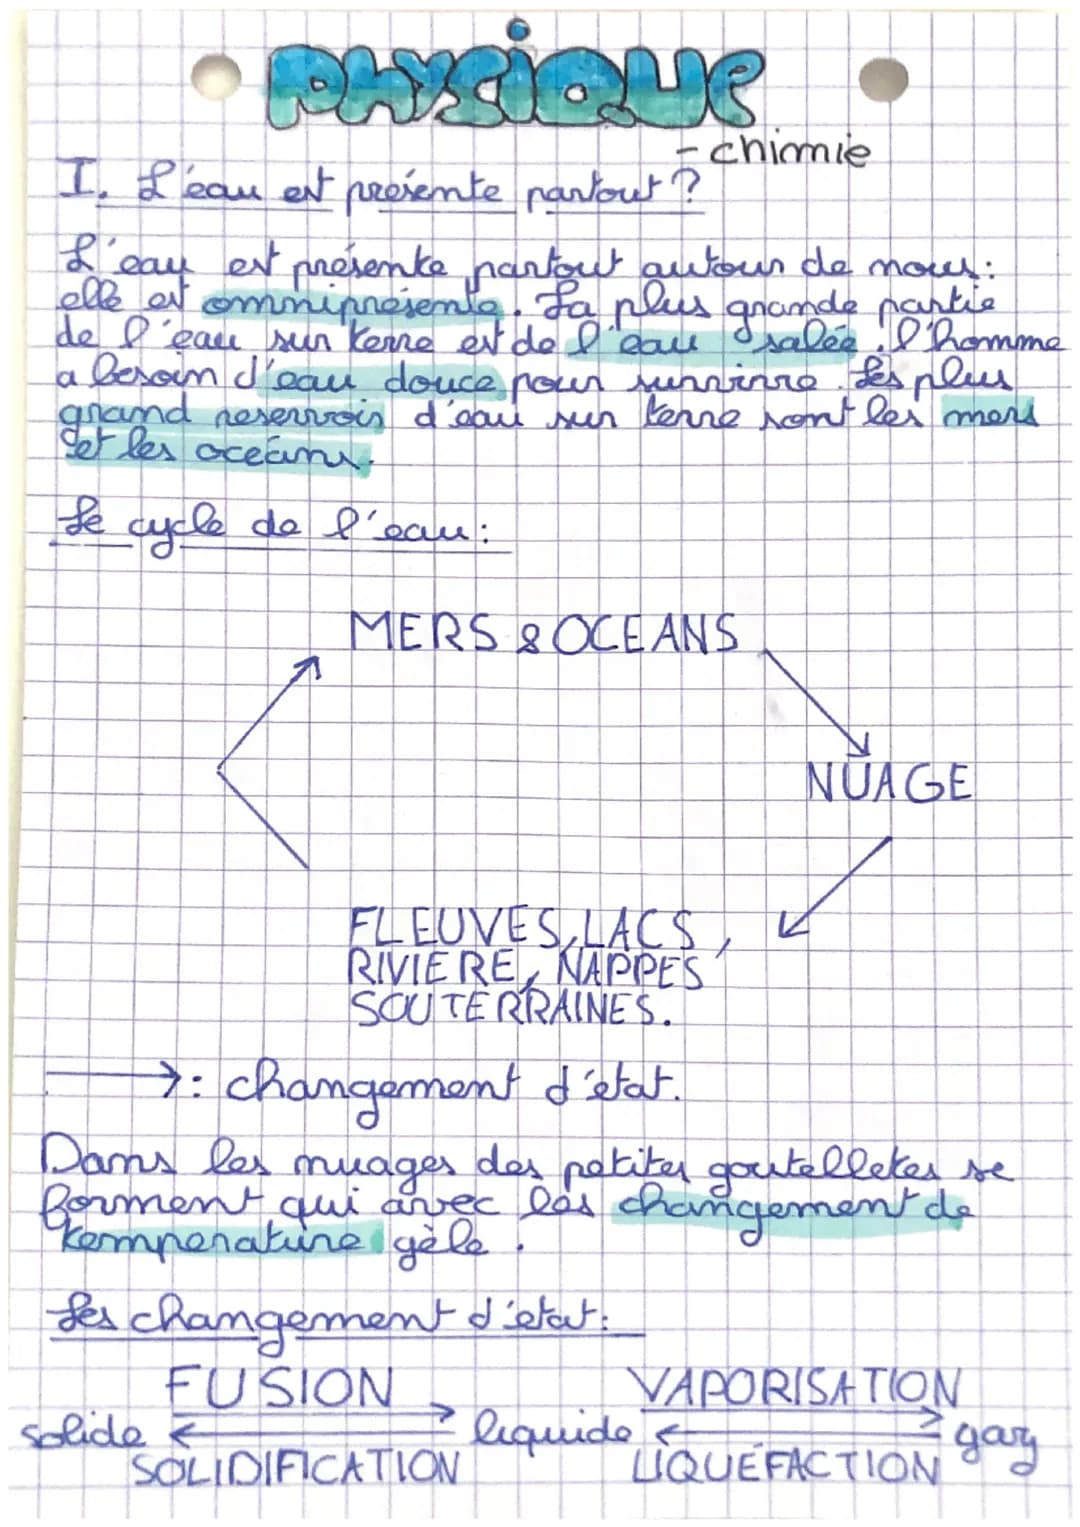 PHYSIQUE
- chimie
I. L'eau est présente partout ?
L'eau est présente partout autour de nous :
elle est omniprésente. La plus grande partie
de l'eau sur terre est de l'eau salée, l'homme
a besoin d'eau douce pour survivre. Les plus
grand reservois d'eau sur terre sont les mers
et les océans.
Le cycle de l'eau :
MERS & OCEANS
NUAGE
FLEUVES, LACS,
RIVIERE, NAPPES
SOUTERRAINES.
→ : changement d'état.
Dans les nuages des petites goutellettes se
forment qui avec les changement de
temperature gèle.
Les changement d'etat :
FUSION VAPORISATION
solide liquide gaz
SOLIDIFICATION LIQUÉFACTION